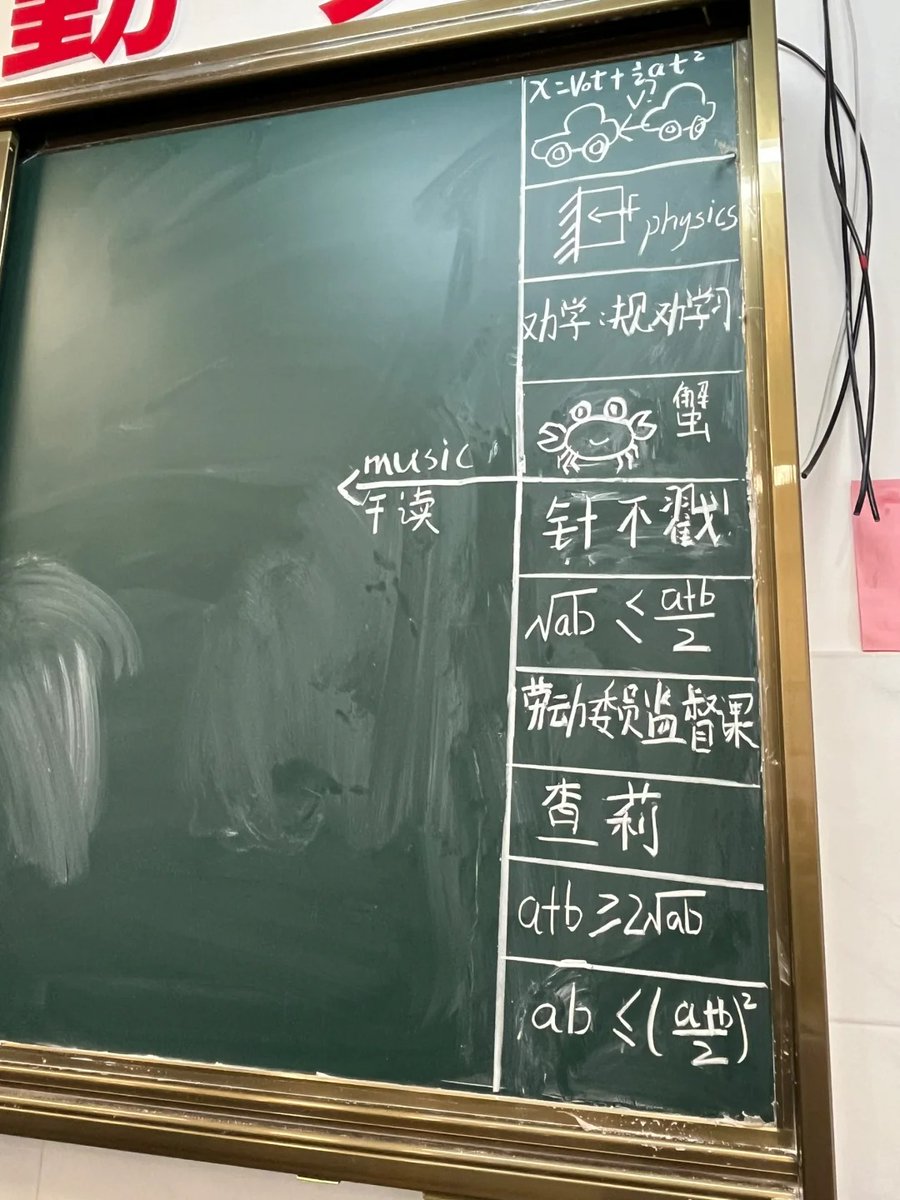 勤
x=v₀t+½at²
v
F
physics
劝学:规劝学习
蟹
music
午读
针不戳
√ab ≤ (a+b)/2
劳动委员监督课
查莉
a+b ≥ 2√ab
ab ≤ ((a+b)/2)²